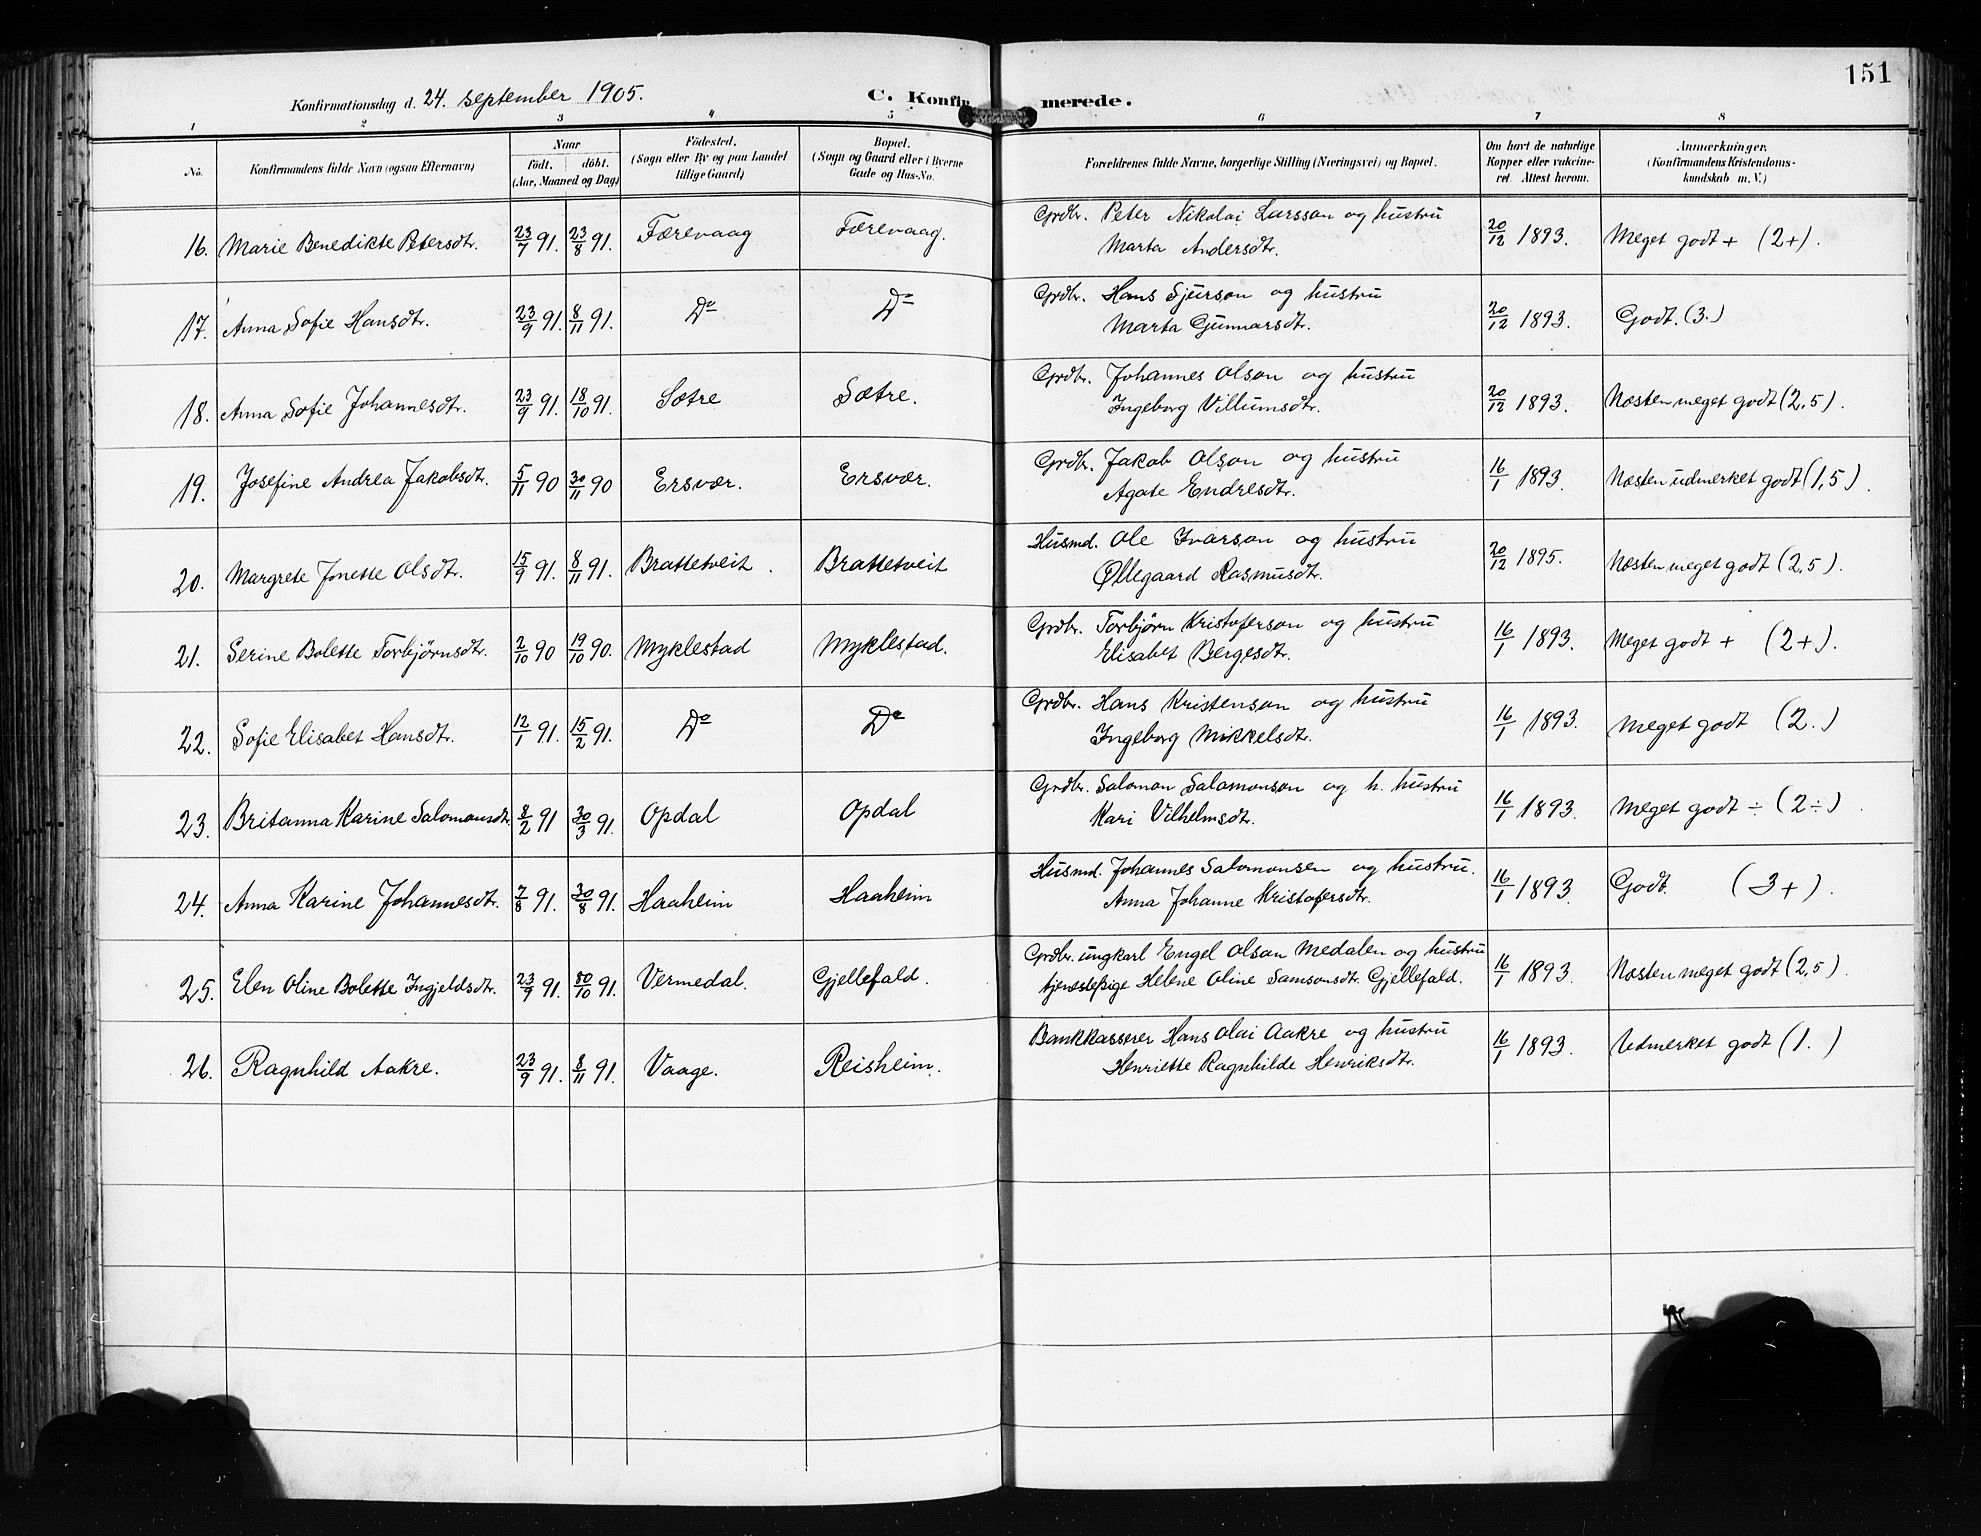 151
Konfirmationsdag d. 24. september 1905. C. Konfirmerede.
1 2 3 4 5 6 7 8
No. Konfirmandens fulde Navn (ogsaa Efternavn) Naar født. døbt. (Aar, Maaned og Dag) Födested. (Sogn eller By og paa Landet tillige Gaard) Bopæl. (Sogn og Gaard eller i Byerne Gade og Hus-No. Forældrenes fulde Navne, borgerlige Stilling (Næringsvei) og Bopæl. Om havt de naturlige Kopper eller vakcineret Attest herom. Anmærkninger. (Konfirmandens Kristendomskundskab m. V.)
16. Marie Benedikte Petersdtr. 23/7 91. 23/8 91. Færevaag Færevaag. Grdbr. Peter Nikolai Larsson og hustru Marta Andersdtr. 20/12 1893. Meget godt + (2+).
17. Anna Sofie Hansdtr. 23/9 91. 8/11 91. Do Do Grdbr. Hans Sjurson og hustru Marta Gunnarsdtr. 20/12 1893. Godt. (3.)
18. Anna Sofie Johannesdtr. 23/9 91. 18/10 91. Sætre Sætre. Grdbr. Johannes Olson og hustru Ingeborg Villumsdtr. 20/12 1893. Næsten meget godt (2,5).
19. Josefine Andrea Jakobsdtr. 5/11 90 30/11 90 Ersvær. Ersvær. Grdbr. Jakob Olson og hustru Agate Endresdtr. 16/1 1893. Næsten udmerket godt (1,5).
20. Margrete Jonette Olsdtr. 15/9 91. 8/11 91. Brattetveit. Brattetveit Husmd. Ole Ivarson og hustru Øllegaard Rasmusdtr. 20/12 1895. Næsten meget godt (2,5).
21. Serine Bolette Torbjørnsdtr. 2/10 90 19/10 90. Myklestad Myklestad. Grdbr. Torbjørn Kristoferson og hustru Elisabet Bergesdtr. 16/1 1893. Meget godt + (2+).
22. Sofie Elisabet Hansdtr. 12/1 91. 15/2 91. Do Do Grdbr. Hans Kristenson og hustru Ingeborg Mikkelsdtr. 16/1 1893. Meget godt (2.)
23. Britanna Karine Salomonsdtr. 8/2 91 30/3 91. Opdal Opdal Grdbr. Salomon Salamonson og h. hustru Kari Vilhelmsdtr. 16/1 1893. Meget godt ÷ (2÷).
24. Anna Karine Johannesdtr. 7/8 91. 30/8 91. Haaheim Haaheim Husmd. Johannes Salomonsen og hustru. Anna Johanne Kristofersdtr. 16/1 1893. Godt. (3+).
25. Elen Oline Bolette Ingjeldsdtr. 23/9 91. 30/10 91. Vermedal. Gjellefald. Grdbr. ungkarl Engel Olson Medalen og hustru tjenestepige Helene Oline Samsonsdtr. Gjellefald. 16/1 1893. Næsten meget godt (2,5).
26. Ragnhild Aakre. 23/9 91. 8/11 91. Vaage. Reisheim. Bankkasserer Hans Olai Aakre og hustru Henriette Ragnhilde Henriksdtr. 16/1 1893. Udmerket godt (1.)